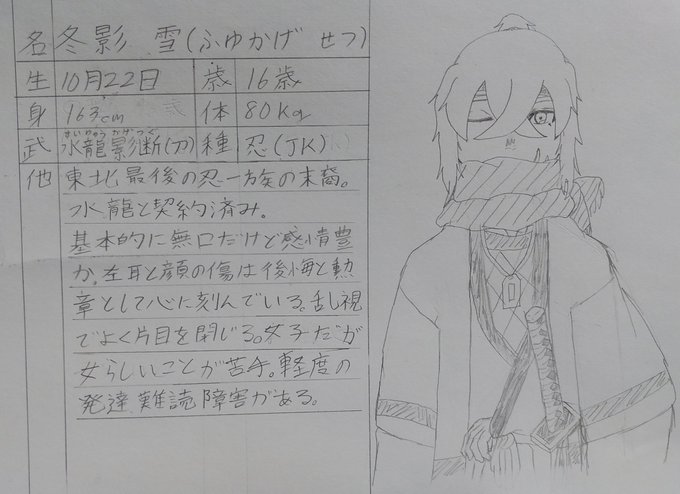 名 冬影 雪(ふゆかげ せつ)
生 10月22日 歳 16歳
身 163cm 体 80Kg
武 水龍影断(刀) 種 忍(JK)
他 東北最後の忍一族の末裔。
水龍と契約済み。
基本的に無口だけど感情豊
か。左耳と顔の傷は後悔と勲
章として心に刻んでいる。乱視
でよく片目を閉じる。女子だが
女らしいことが苦手。軽度の
発達難読障害がある。